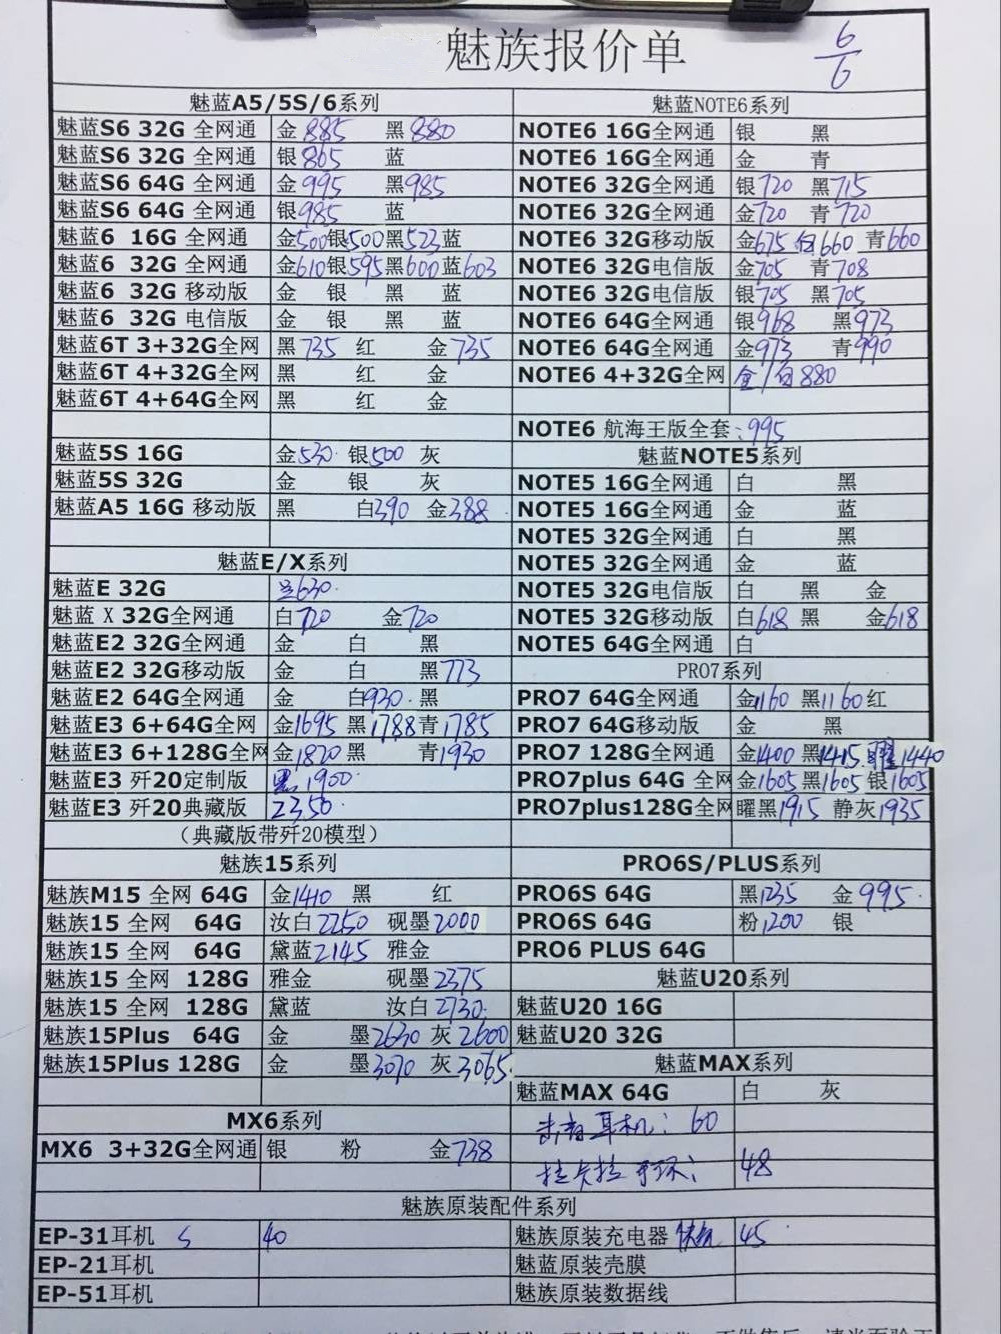 魅族报价单
6/6
魅蓝A5/5S/6系列
魅蓝S6 32G 全网通 金885 黑880
魅蓝S6 32G 全网通 银865 蓝
魅蓝S6 64G 全网通 金995 黑985
魅蓝S6 64G 全网通 银985 蓝
魅蓝6 16G 全网通 金500银500黑523蓝
魅蓝6 32G 全网通 金610银595黑600蓝603
魅蓝6 32G 移动版 金 银 黑 蓝
魅蓝6 32G 电信版 金 银 黑 蓝
魅蓝6T 3+32G全网 黑735 红 金735
魅蓝6T 4+32G全网 黑 红 金
魅蓝6T 4+64G全网 黑 红 金
魅蓝5S 16G 金530 银500 灰
魅蓝5S 32G 金 银 灰
魅蓝A5 16G 移动版 黑 白390 金388
魅蓝E/X系列
魅蓝E 32G 630
魅蓝 X 32G全网通 白720 金720
魅蓝E2 32G全网通 金 白 黑
魅蓝E2 32G移动版 金 白 黑773
魅蓝E2 64G全网通 金 白930 黑
魅蓝E3 6+64G全网 金1695 黑1788青1785
魅蓝E3 6+128G全网 金1820黑 青1930
魅蓝E3 歼20定制版 黑1900
魅蓝E3 歼20典藏版 2350
（典藏版带歼20模型）
魅族15系列
魅族M15 全网 64G 金1410 黑 红
魅族15 全网 64G 汝白2250 砚墨2000
魅族15 全网 64G 黛蓝2145 雅金
魅族15 全网 128G 雅金 砚墨2375
魅族15 全网 128G 黛蓝 汝白2730
魅族15Plus 64G 金 墨2630 灰2600
魅族15Plus 128G 金 墨3070 灰3065
MX6系列
MX6 3+32G全网通 银 粉 金738
魅蓝NOTE6系列
NOTE6 16G全网通 银 黑
NOTE6 16G全网通 金 青
NOTE6 32G全网通 银720 黑715
NOTE6 32G全网通 金720 青720
NOTE6 32G移动版 金675 白660 青660
NOTE6 32G电信版 金705 青708
NOTE6 32G电信版 银705 黑705
NOTE6 64G全网通 银968 黑973
NOTE6 64G全网通 金973 青990
NOTE6 4+32G全网 金/白880
NOTE6 航海王版全套：995
魅蓝NOTE5系列
NOTE5 16G全网通 白 黑
NOTE5 16G全网通 金 蓝
NOTE5 32G全网通 白 黑
NOTE5 32G全网通 金 蓝
NOTE5 32G电信版 白 黑 金
NOTE5 32G移动版 白618 黑 金618
NOTE5 64G全网通 白
PRO7系列
PRO7 64G全网通 金1160 黑1160红
PRO7 64G移动版 金 黑
PRO7 128G全网通 金1400 黑1415 曜1440
PRO7plus 64G 全网 金1605黑1605 银1605
PRO7plus128G全网 曜黑1915 静灰1935
PRO6S/PLUS系列
PRO6S 64G 黑1235 金995
PRO6S 64G 粉1200 银
PRO6 PLUS 64G
魅蓝U20系列
魅蓝U20 16G
魅蓝U20 32G
魅蓝MAX系列
魅蓝MAX 64G 白 灰
耳机：60
拉卡拉手环：48
魅族原装配件系列
EP-31耳机 40
EP-21耳机
EP-51耳机
魅族原装充电器 45
魅蓝原装壳膜
魅族原装数据线